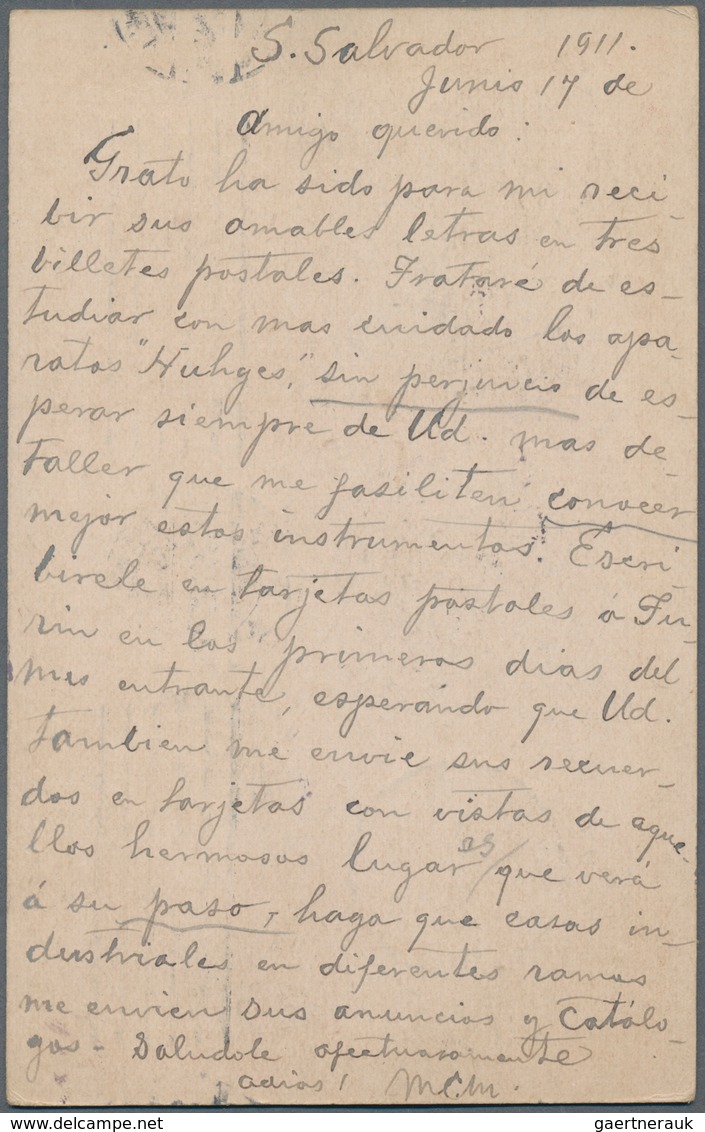 S. Salvador 1911.
Junio 17 de
Amigo querido:
Grato ha sido para mi reci-
bir sus amables letras en tres
billetes postales. Trataré de es-
tudiar con mas cuidado los apa-
ratos "Huhges", sin perjuicio de es-
perar siempre de Ud. mas de-
talles que me fasiliten conocer
mejor estos instrumentos. Escri-
birele en tarjetas postales á Tu-
rin en los primeros dias del
mes entrante, esperando que Ud.
tambien me envie sus recuer-
dos en tarjetas con vistas de aque-
llos hermosos lugares que verá
á su paso, - haga que casas in-
dustriales en diferentes ramos
me envien sus anuncios y Catálo-
gos - Saludole afectuosamente
adios! MCM.
Copyright: Delcampe.net
gaertnerauk